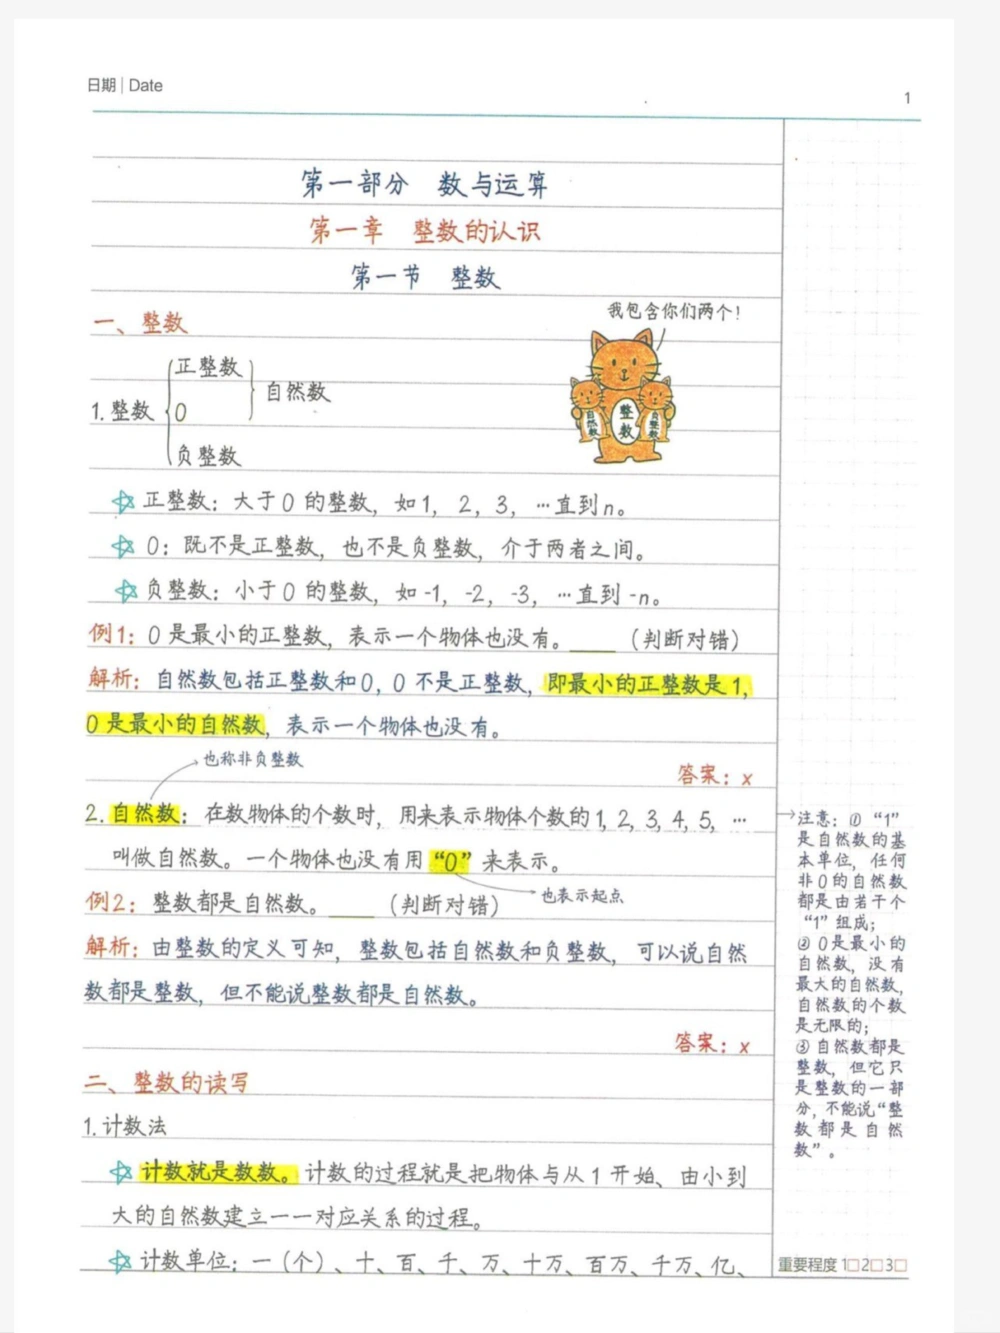 日期 | Date
1
第一部分 数与运算
第一章 整数的认识
第一节 整数
一、整数
我包含你们两个！
正整数
1.整数
0
自然数
负整数
自然数
整数
负整数
正整数：大于0的整数，如1，2，3，…直到n。
0：既不是正整数，也不是负整数，介于两者之间。
负整数：小于0的整数，如-1，-2，-3，…直到-n。
例1：0是最小的正整数，表示一个物体也没有。____（判断对错）
解析：自然数包括正整数和0，0不是正整数，即最小的正整数是1，
0是最小的自然数，表示一个物体也没有。
也称非负整数
答案：x
2.自然数：在数物体的个数时，用来表示物体个数的1，2，3，4，5，…
叫做自然数。一个物体也没有用“0”来表示。
也表示起点
例2：整数都是自然数。____（判断对错）
解析：由整数的定义可知，整数包括自然数和负整数，可以说自然
数都是整数，但不能说整数都是自然数。
答案：x
二、整数的读写
1.计数法
计数就是数数。计数的过程就是把物体与从1开始、由小到
大的自然数建立一一对应关系的过程。
计数单位：一（个）、十、百、千、万、十万、百万、千万、亿、
注意：①“1”
是自然数的基
本单位，任何
非0的自然数
都是由若干个
“1”组成；
②0是最小的
自然数，没有
最大的自然数，
自然数的个数
是无限的；
③自然数都是
整数，但它只
是整数的一部
分，不能说“整
数都是自然
数”。
重要程度 1□2□3□